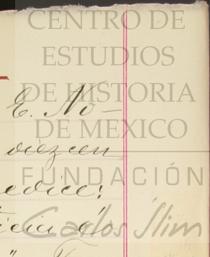 CENTRO DE
ESTUDIOS
DE HISTORIA
DE MÉXICO
FUNDACIÓN
Carlos Slim
E. No-
diez cen
edice: